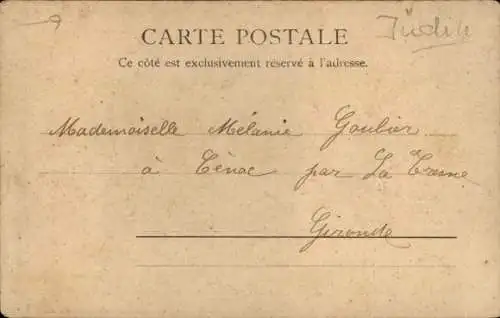 Jüdin
CARTE POSTALE
Ce côté est exclusivement réservé à l'adresse.
Mademoiselle Mélanie Goulier
à Cénac par La Tresne
Gironde